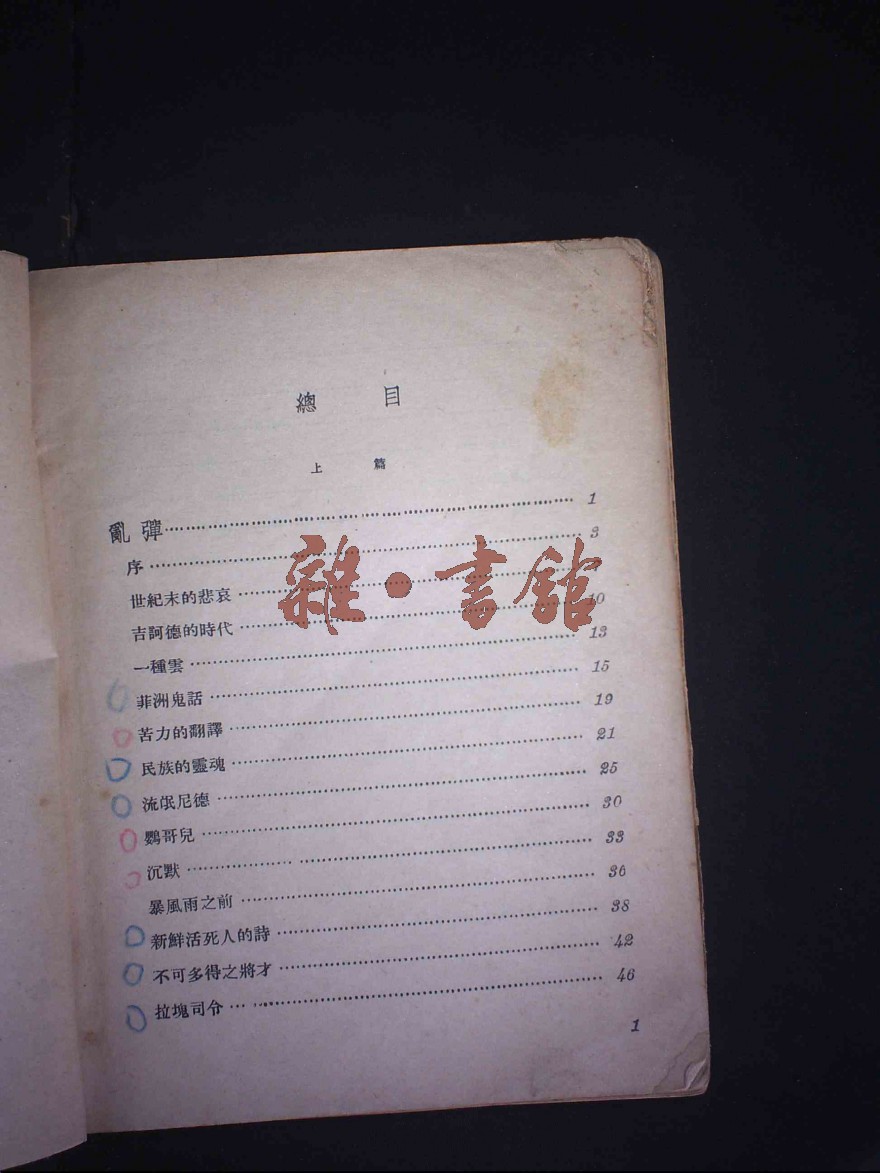 總目
上篇
亂彈……………………………………1
序……………………………………3
世紀末的悲哀……………………………………
吉訶德的時代……………………………………10
一種雲……………………………………13
菲洲鬼話……………………………………15
苦力的翻譯……………………………………19
民族的靈魂……………………………………21
流氓尼德……………………………………25
鸚哥兒……………………………………30
沉默……………………………………33
暴風雨之前……………………………………36
新鮮活死人的詩……………………………………38
不可多得之將才……………………………………42
拉塊司令……………………………………46
1
雜·書館